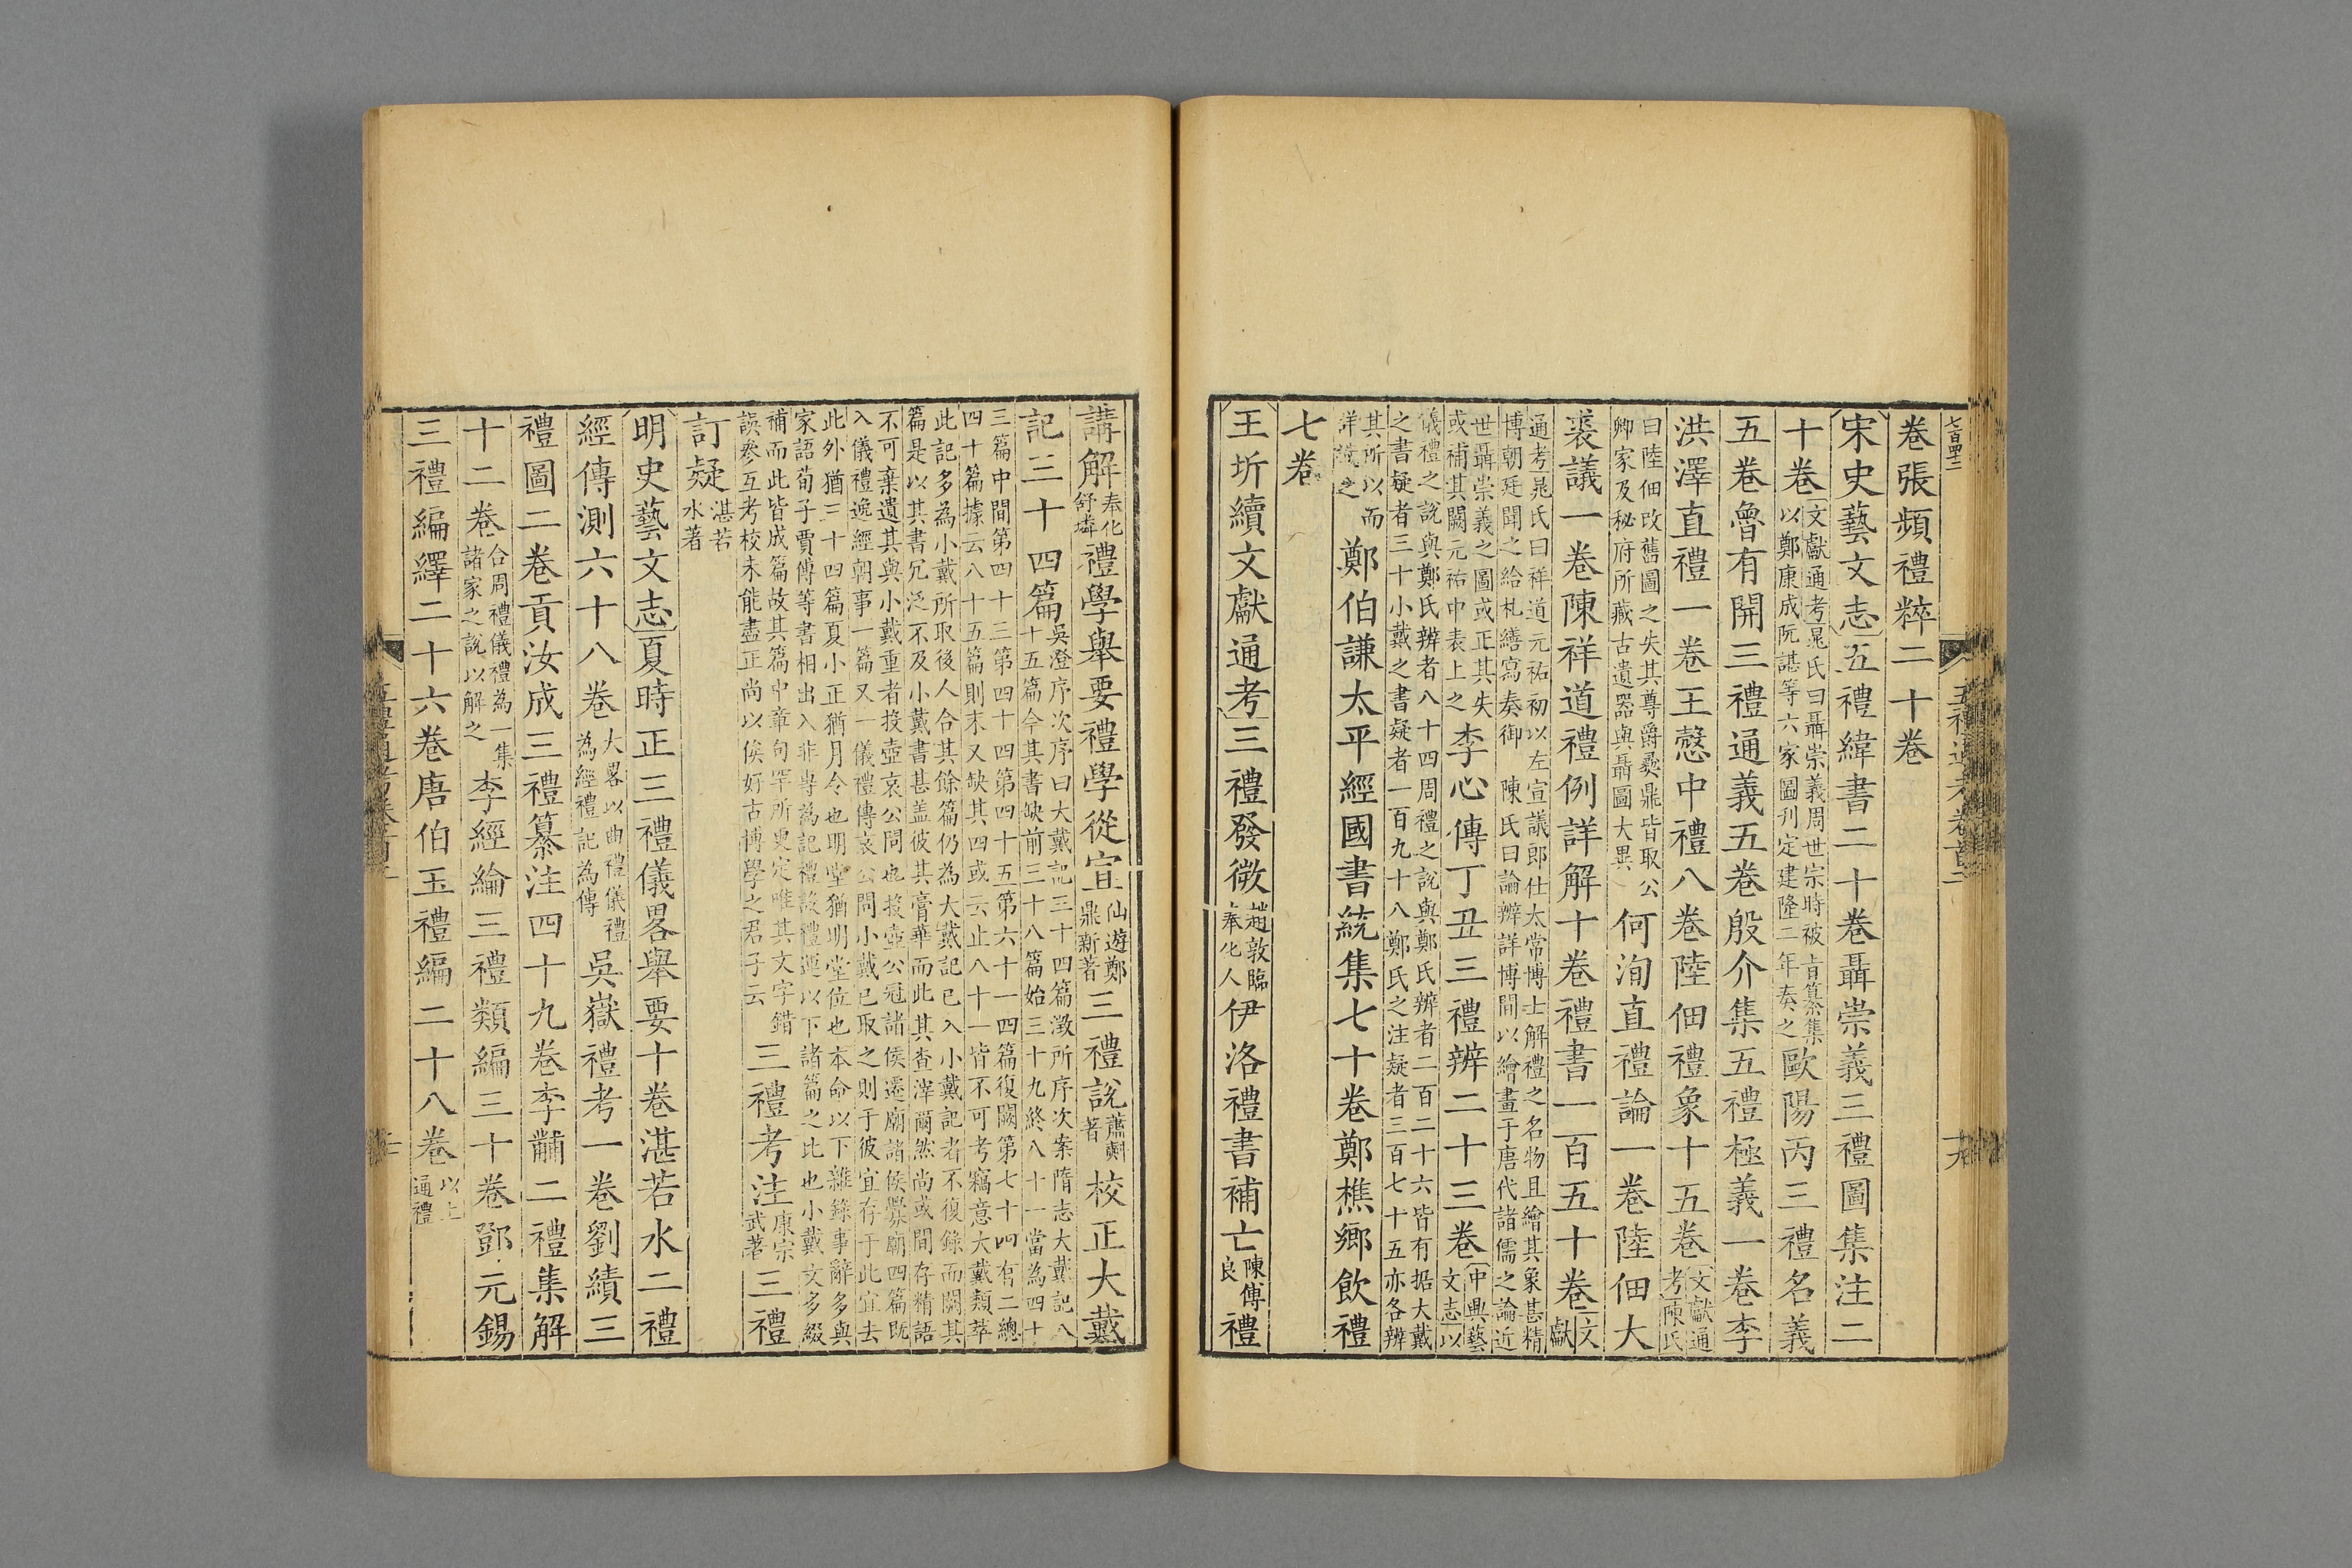 七百四十二
五禮通考卷首二
卷張頻禮粹二十卷
宋史藝文志五禮緯書二十卷聶崇義三禮圖集注二
十卷文獻通考晁氏曰聶崇義周世宗時被旨纂集
以鄭康成阮諶等六家圖刊定建隆二年奏之歐陽丙三禮名義
五卷魯有開三禮通義五卷殷介集五禮極義一卷李
洪澤直禮一卷王愨中禮八卷陸佃禮象十五卷文獻通
考陳氏
曰陸佃改舊圖之失其尊爵彝鼎皆取公
卿家及秘府所藏古遺器與聶圖大異何洵直禮論一卷陸佃大
裘議一卷陳祥道禮例詳解十卷禮書一百五十卷文
獻
通考晁氏曰祥道元祐初以左宣議郎仕太常博士解禮之名物且繪其象甚精
博朝廷聞之給札繕寫奏御 陳氏曰論辨詳博間以繪畫于唐代諸儒之論近
世聶崇義之圖或正其失
或補其闕元祐中表上之李心傳丁丑三禮辨二十三卷中興藝
文志以
儀禮之說與鄭氏辨者八十四周禮之說與鄭氏辨者二百二十六皆有据大戴
之書疑者三十小戴之書疑者一百九十八鄭氏之注疑者三百七十五亦各辨
其所以而
詳識之鄭伯謙太平經國書統集七十卷鄭樵鄉飲禮
七卷
王圻續文獻通考三禮發微趙敦臨
奉化人伊洛禮書補亡陳傅
良禮
講解奉化
舒璘禮學舉要禮學從宜仙遊鄭
鼎新著三禮說蕭㪺
著校正大戴
記三十四篇吳澄序次序曰大戴記三十四篇澂所序次案隋志大戴記八
十五篇今其書缺前三十八篇始三十九終八十一當為四十
三篇中間第四十三第四十四第四十五第六十一四篇復闕第七十四有二總
四十篇據云八十五篇則末又缺其四或云止八十一皆不可考竊意大戴類萃
此記多為小戴所取後人合其餘篇仍為大戴記已入小戴記者不復錄而闕其
篇是以其書冗泛不及小戴書甚盖彼其膏華而此其查滓爾然尚或間存精語
不可棄遺其與小戴重者投壺哀公問也投壺公冠諸侯遷廟諸侯釁廟四篇既
入儀禮逸經朝事一篇又一儀禮傳哀公問小戴已取之則于彼宜存于此宜去
此外猶三十四篇夏小正猶月令也明堂猶明堂位也本命以下雜錄事辭多與
家語荀子賈傳等書相出入非專為記禮設禮運以下諸篇之比也小戴文多綴
補而此皆成篇故其篇中章句罕所更定唯其文字錯
誤參互考校未能盡正尚以俟好古博學之君子云三禮考注康宗
武著三禮
訂疑湛若
水著
明史藝文志夏時正三禮儀畧舉要十卷湛若水二禮
經傳測六十八卷大畧以曲禮儀禮
為經禮記為傳吳嶽禮考一卷劉績三
禮圖二卷貢汝成三禮纂注四十九卷李黼二禮集解
十二卷合周禮儀禮為一集
諸家之說以解之李經綸三禮類編三十卷鄧元錫
三禮編繹二十六卷唐伯玉禮編二十八卷以上
通禮